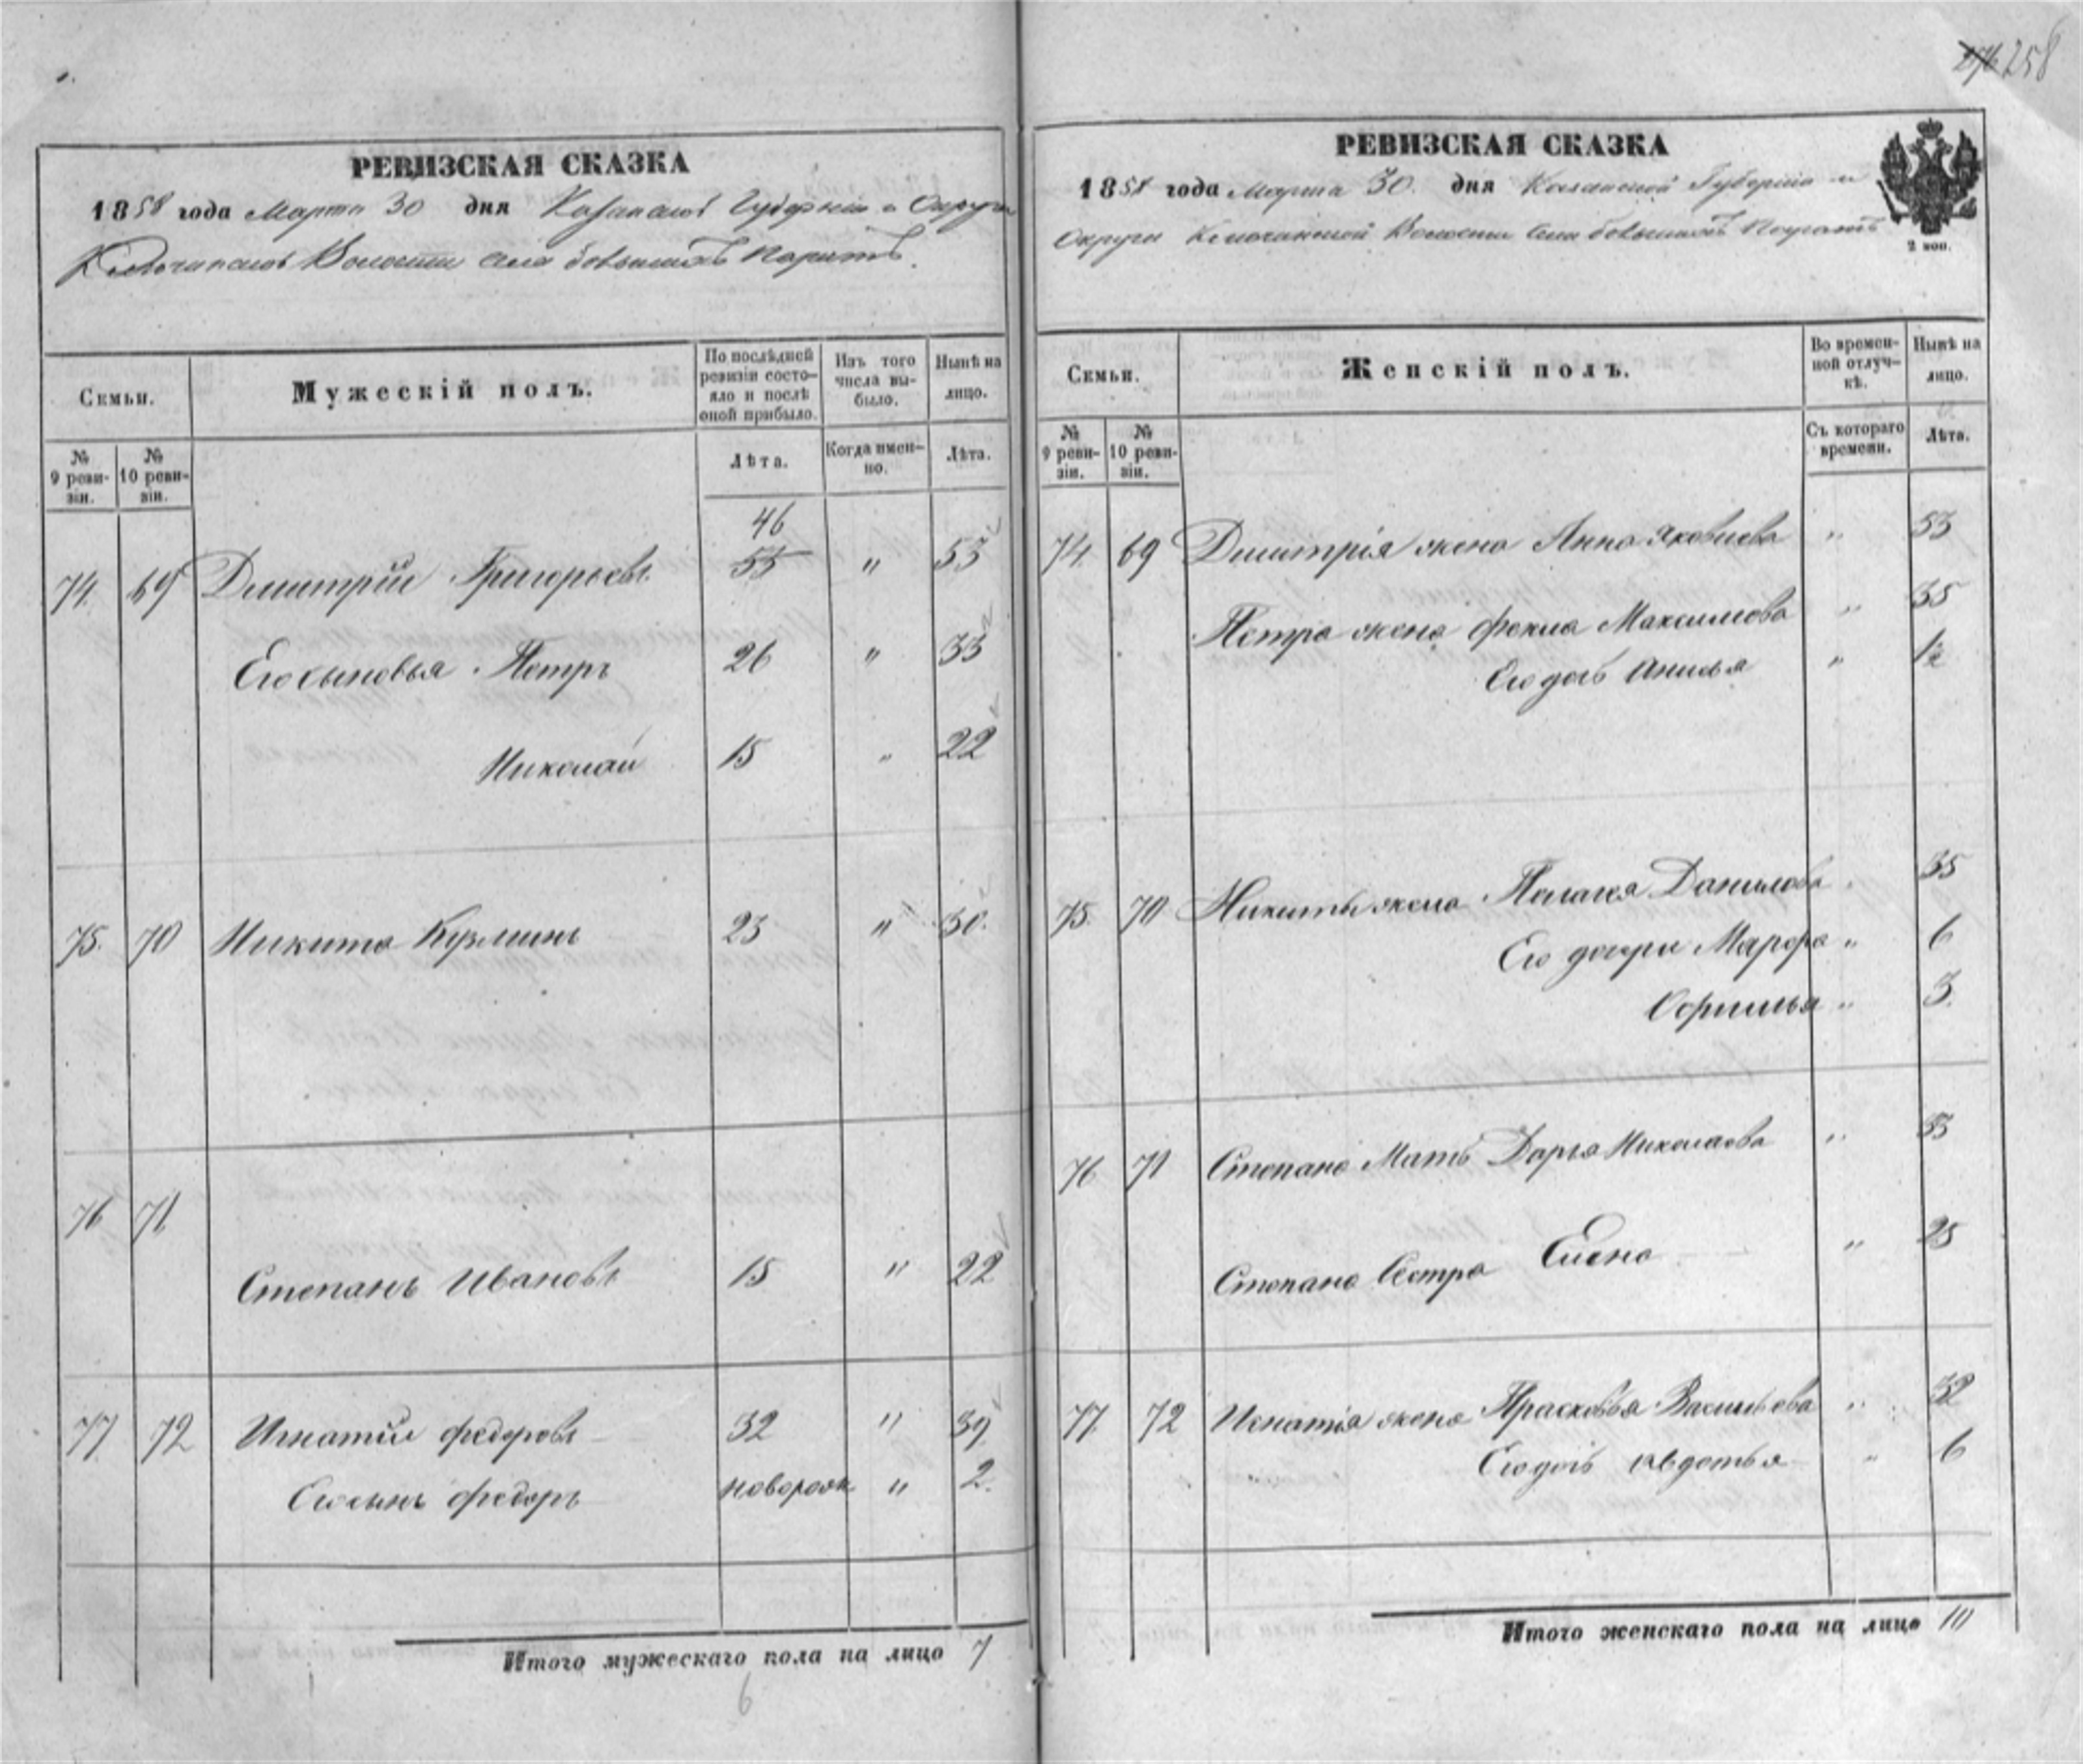 258
РЕВИЗСКАЯ СКАЗКА
1858 года Марта 30 дня Казанской Губерніи и Округа
Волости села Большихъ
Семьи.
Мужескій полъ.
По послѣдней ревизіи состояло и послѣ оной прибыло.
Изъ того числа выбыло.
Нынѣ на лицо.
№ 9 ревизіи.
№ 10 ревизіи.
Лѣта.
Когда именно.
Лѣта.
46
74. 69 Дмитрій Григорьевъ 55 " 53
Его сыновья Петръ 26 " 33
Николай 15 " 22
75. 70 Никита Кузминъ 23 " 30.
76 71
Степанъ Ивановъ 15 " 22
77 72 Игнатій Федоровъ 32 " 39
Его сынъ Федоръ новорож " 2.
Итого мужескаго пола на лицо 7
6
РЕВИЗСКАЯ СКАЗКА
1858 года Марта 30. дня Казанской Губерніи и
Округа Волости села Большихъ
2 коп.
Семьи.
Женскій полъ.
Во временной отлучкѣ.
Нынѣ на лицо.
№ 9 ревизіи.
№ 10 ревизіи.
Съ котораго времени.
Лѣта.
74. 69 Дмитрія жена Анна Яковлева " 53
Петра жена Фекла Максимова " 35
Его дочь Анисья "
75. 70 Никиты жена Пелагея Данилова " 35
Его дочери Марфа " 6
Офимья " 3.
76 71 Степана Мать Дарья Николаева "
Степана Сестра Елена " 25
77. 72 Игнатія жена Прасковья Васильева " 32
Его дочь Авдотья " 6
Итого женскаго пола на лицо 10